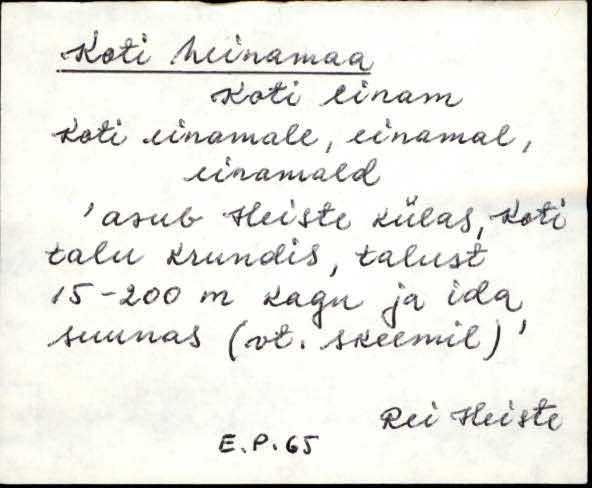 Koti heinamaa
Koti einam
Koti einamale, einamal,
einamald
'asub Heiste külas, Koti
talu krundis, talust
15-200 m kagu ja ida
suunas (vt. skeemil)'
Rei Heiste
E.P.65